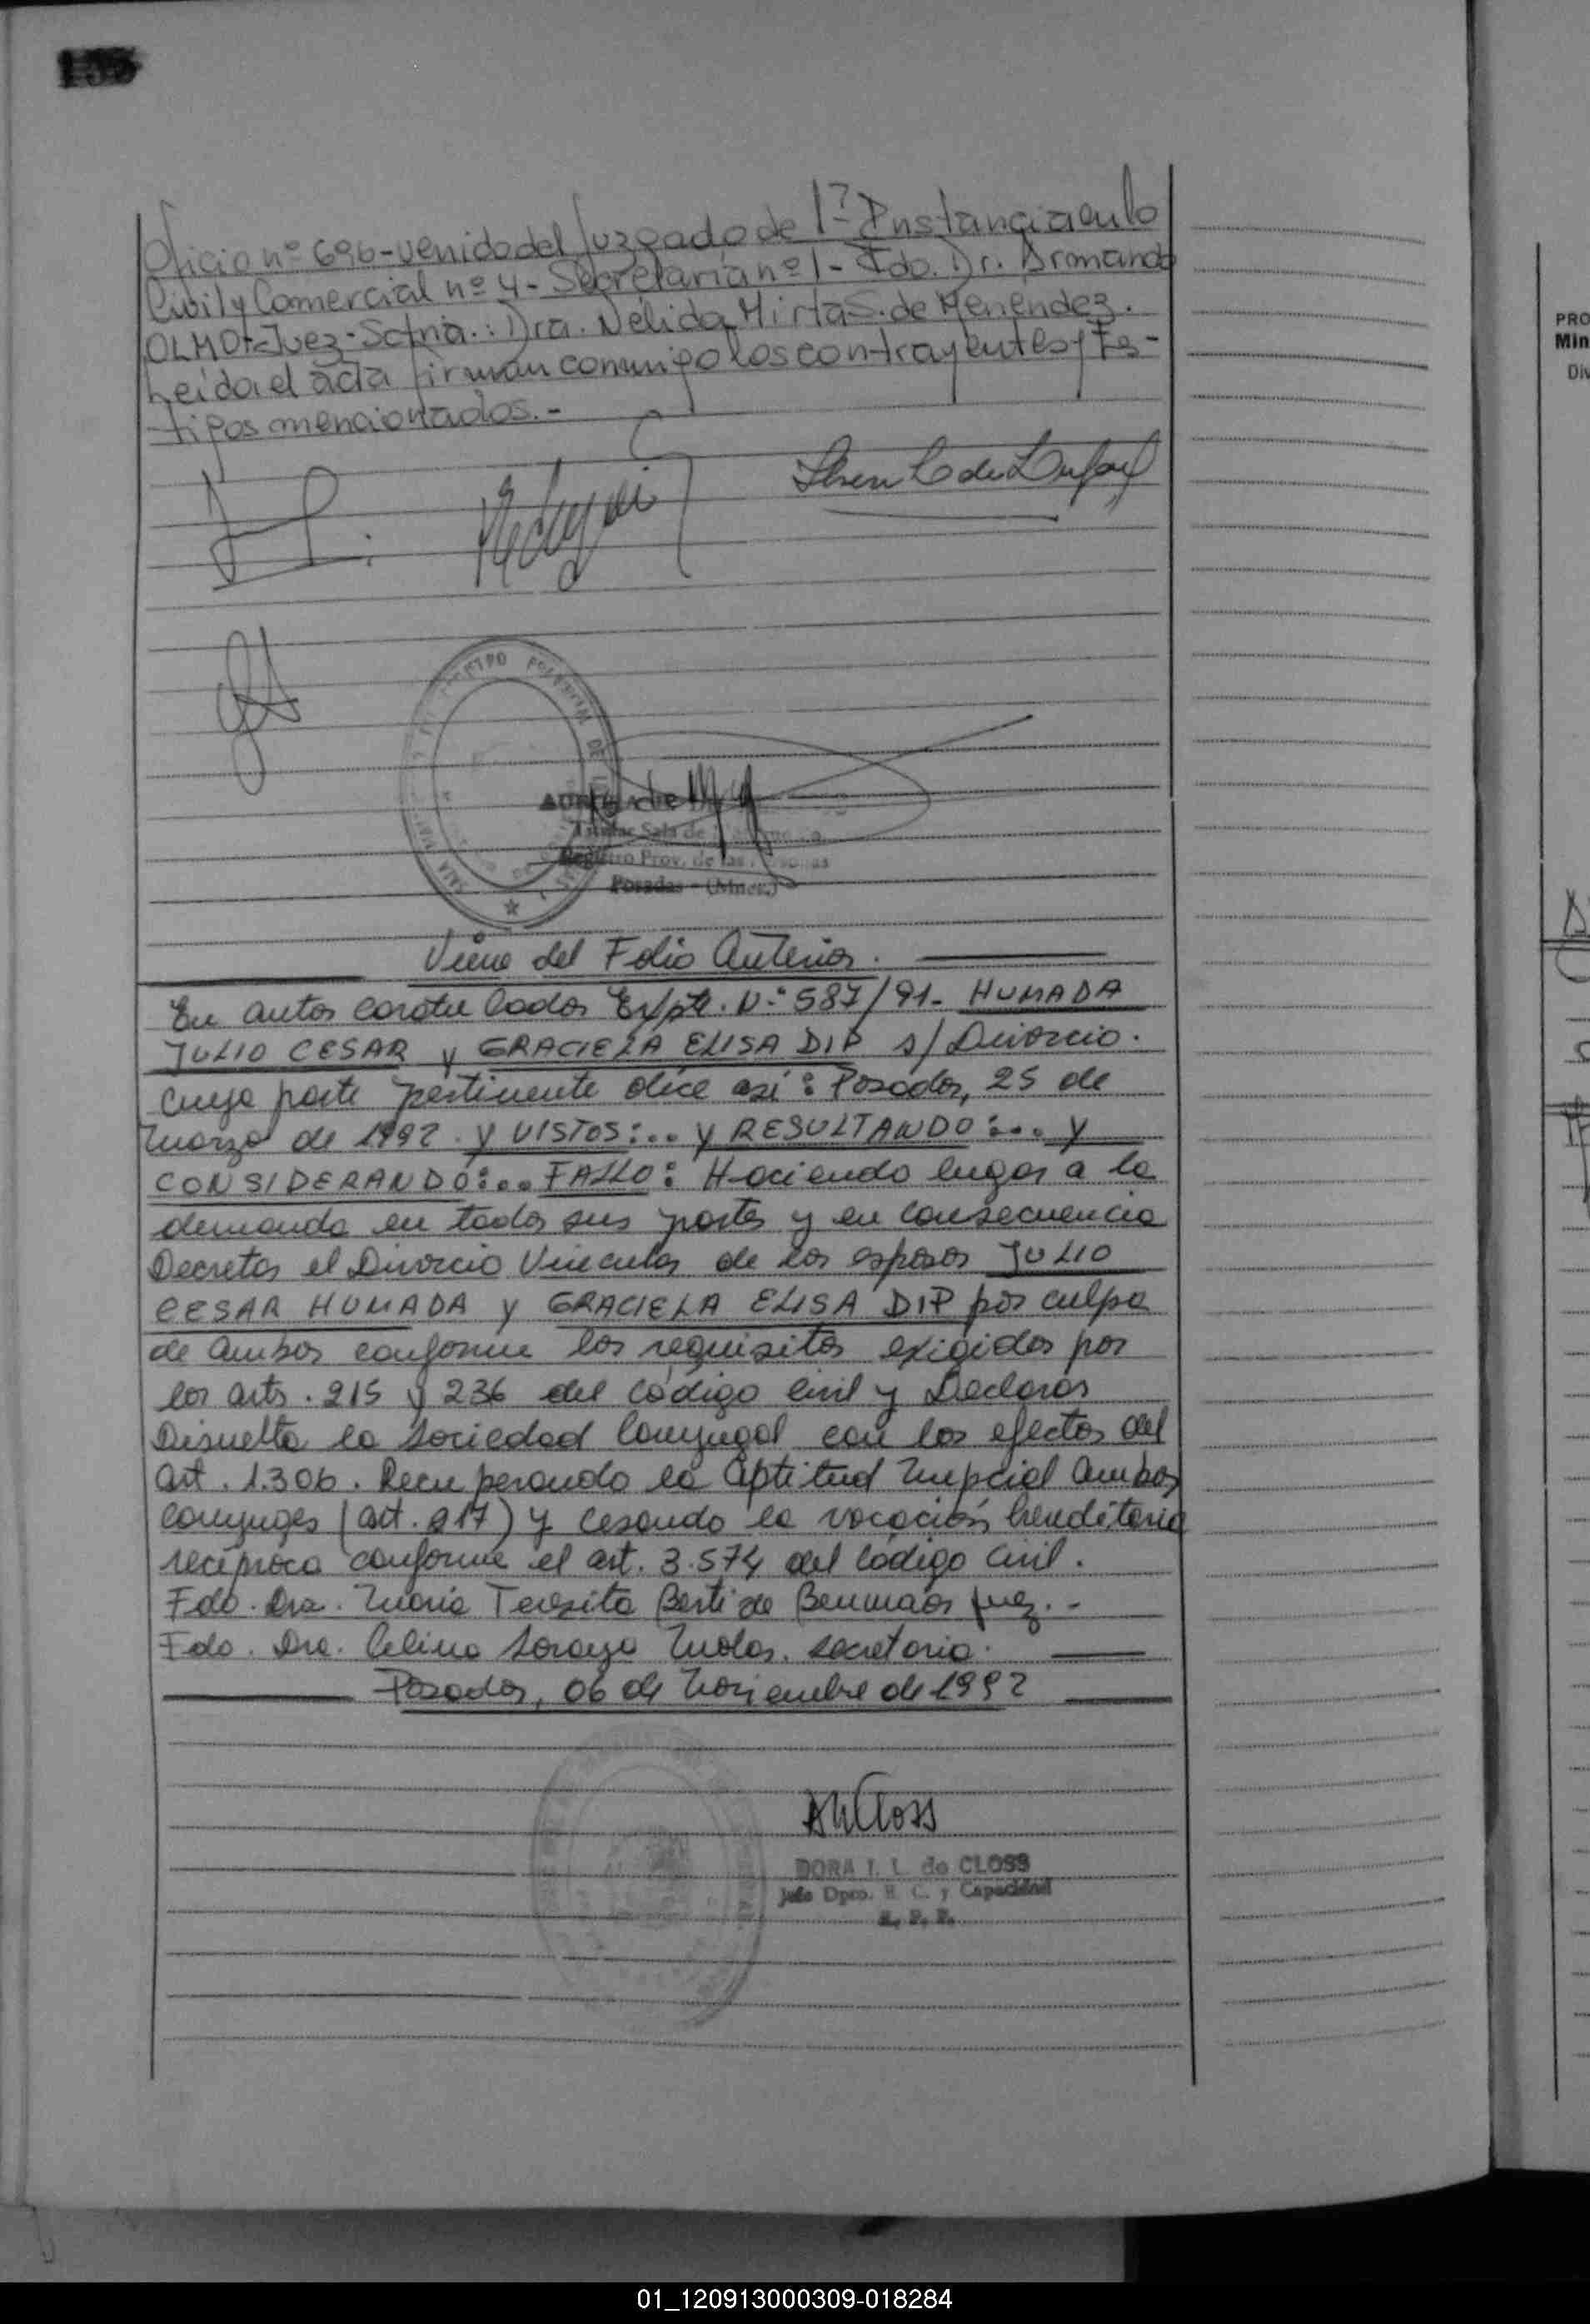 Oficio nº 696-venido del Juzgado de 1ª Instancia en lo
Civil y Comercial nº 4- Secretaría nº 1- Fdo. Dr. Armando
OLMO-Juez- Sctria.: Dra. Nélida Mirta S. de Menéndez.
Leída el acta firman conmigo los contrayentes y tes-
tigos mencionados.-
Titular Sala de
Registro Prov. de las Personas
Posadas - (Mnes.)
Viene del Folio Anterior.
En autos caratulados Expte. Nº 587/91- HUMADA
JULIO CESAR y GRACIELA ELISA DIP s/ Divorcio.
cuya parte pertinente dice así: Posadas, 25 de
Marzo de 1992. Y VISTOS:... y RESULTANDO:... y
CONSIDERANDO:... FALLO: Haciendo lugar a la
demanda en todas sus partes y en consecuencia
Decretar el Divorcio Vincular de los esposos JULIO
CESAR HUMADA y GRACIELA ELISA DIP por culpa
de ambos conforme los requisitos exigidos por
los arts. 215 y 236 del código Civil y Declarar
Disuelta la Sociedad Conyugal con los efectos del
art. 1.306. Recuperando la aptitud nupcial ambos
conyuges (art. 217) y cesando la vocación hereditaria
recíproca conforme el art. 3.574 del Código Civil.
Fdo. Dra. María Teresita Berti de Benmaor Juez.-
Fdo. Dra. Celina Soraya Molas. Secretaria.
Posadas, 06 de Noviembre de 1992
DORA I. L. de CLOSS
Jefe Dpto. E. C. y Capacidad
R. P. P.
PRO
Min
Div
01_120913000309-018284